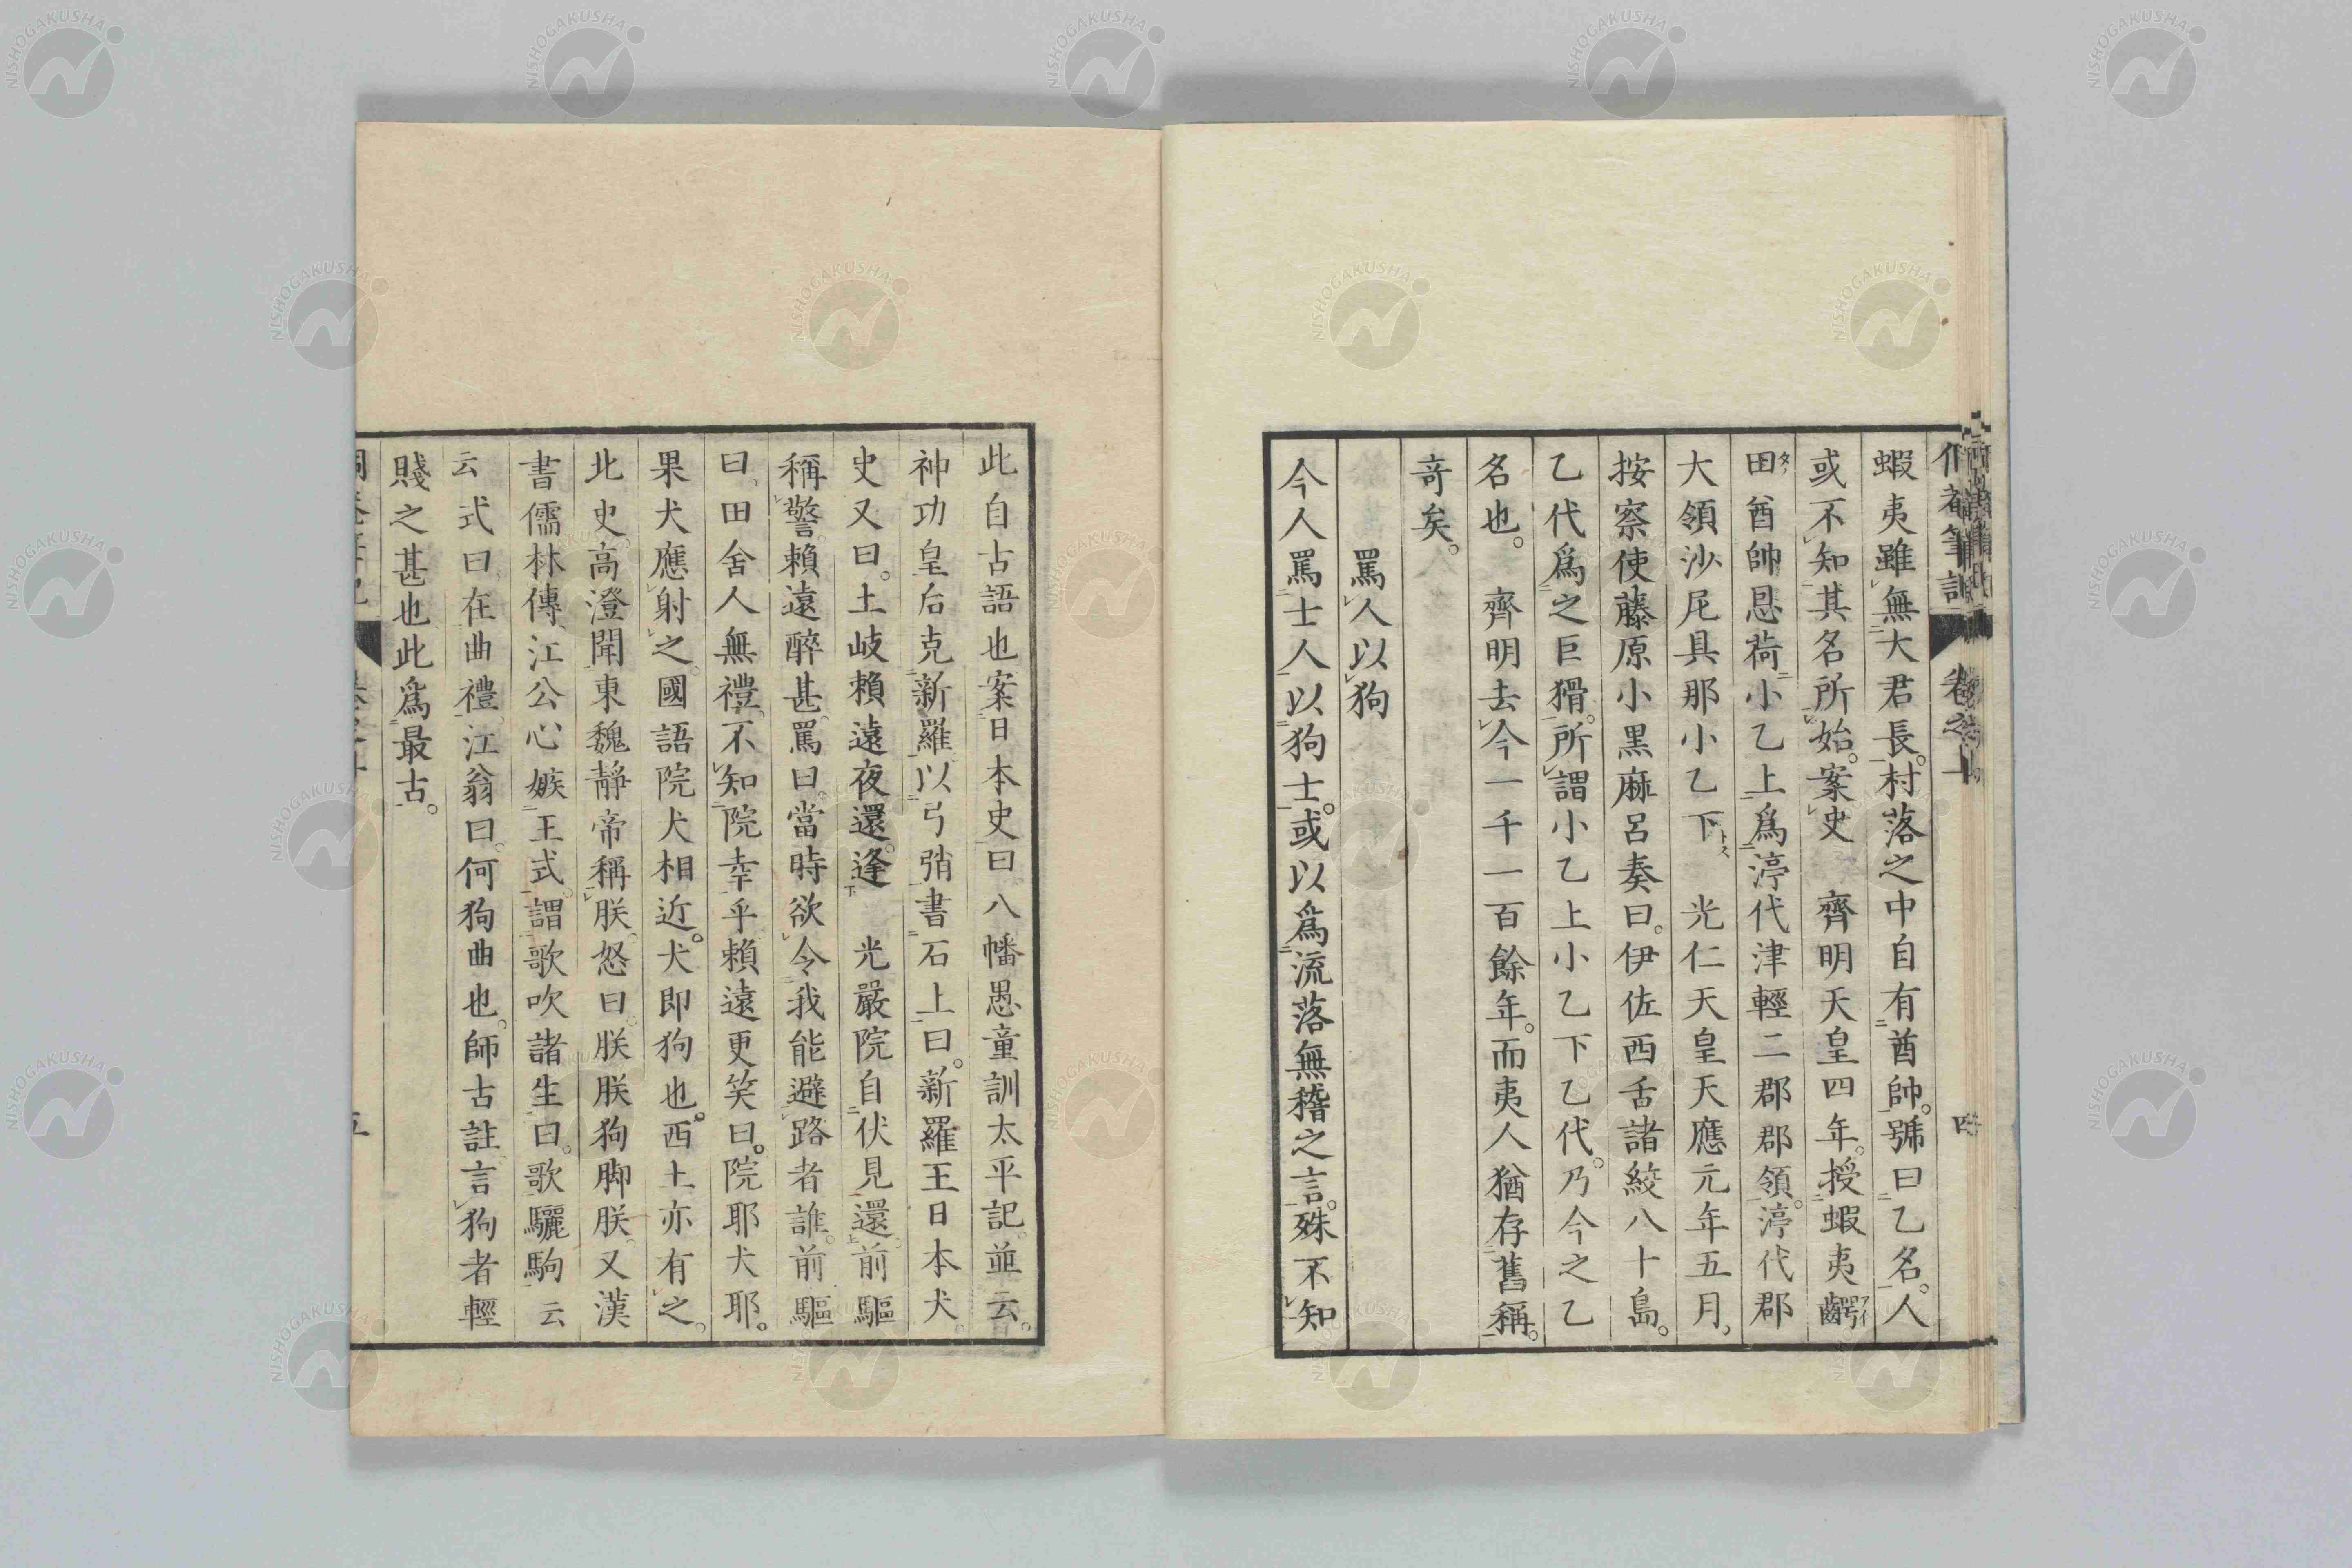 蝦夷雖無大君長。村落之中自有酋帥。號曰乙名。人
或不知其名所始。案史　齊明天皇四年。授蝦夷齶
田酋帥恩荷小乙上爲渟代津輕二郡郡領。渟代郡
大領沙尼具那小乙下　光仁天皇天應元年五月、
按察使藤原小黑麻呂奏曰。伊佐西舌諸絞八十島。
乙代爲之巨猾。所謂小乙上小乙下乙代。乃今之乙
名也。　齊明去今一千一百餘年。而夷人猶存舊稱。
竒矣。
罵人以狗
今人罵士人以狗士。或以爲流落無稽之言。殊不知
此自古語也案日本史曰八幡愚童訓太平記並云。
神功皇后克新羅以弓弰書石上曰。新羅王日本犬
史又曰。土岐賴遠夜還。逢　光嚴院自伏見還前驅
稱警賴遠醉甚。罵曰。當時欲令我能避路者誰。前驅
曰。田舍人無禮。不知院幸乎賴遠更笑曰。院耶犬耶。
果犬應射之。國語院犬相近。犬即狗也。西土亦有之。
北史。高澄聞東魏靜帝稱朕。怒曰。朕朕狗脚朕。又漢
書儒林傳。江公心嫉王式。謂歌吹諸生曰。歌驪駒云
云式曰。在曲禮。江翁曰。何狗曲也。師古註。言狗者輕
賤之甚也此爲最古。